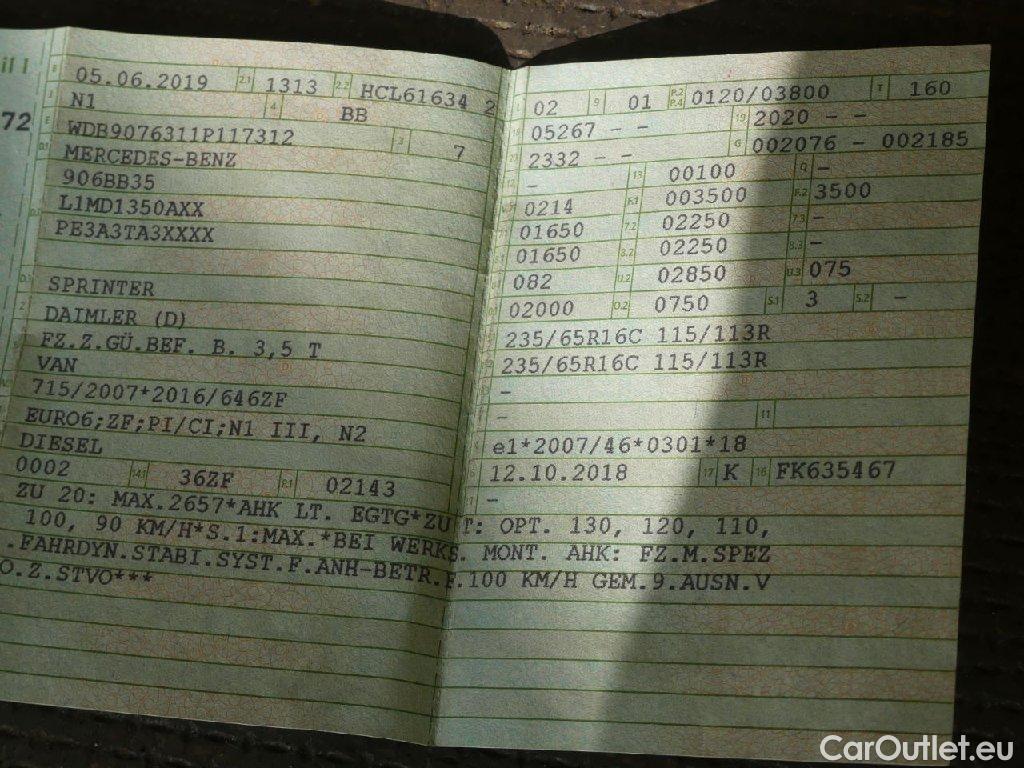 il I
72
B 05.06.2019 2.1 1313 2.2 HCL61634 2
J N1 4 BB
E WDB9076311P117312 3 7
D.1 MERCEDES-BENZ
906BB35
L1MD1350AXX
PE3A3TA3XXXX
D.3 SPRINTER
2 DAIMLER (D)
FZ.Z.GÜ.BEF. B. 3,5 T
VAN
715/2007*2016/646ZF
EURO6;ZF;PI/CI;N1 III, N2
DIESEL
0002 14.1 36ZF P.1 02143
L 02 9 01 P.2 P.4 0120/03800 T 160
18 05267 - - 19 2020 - -
20 2332 - - G 002076 - 002185
12 - 13 00100 Q -
V.7 0214 F.1 003500 F.2 3500
7.1 01650 7.2 02250 7.3 -
8.1 01650 8.2 02250 8.3 -
U.1 082 U.2 02850 U.3 075
O.1 02000 O.2 0750 S.1 3 S.2 -
235/65R16C 115/113R
235/65R16C 115/113R
-
- 11
K e1*2007/46*0301*18
6 12.10.2018 17 K 16 FK635467
-
ZU 20: MAX.2657*AHK LT. EGTG*ZU T: OPT. 130, 120, 110,
100, 90 KM/H*S.1:MAX.*BEI WERKS. MONT. AHK: FZ.M.SPEZ
.FAHRDYN.STABI.SYST.F.ANH-BETR.F.100 KM/H GEM.9.AUSN.V
O.Z.STVO***
CarOutlet.eu